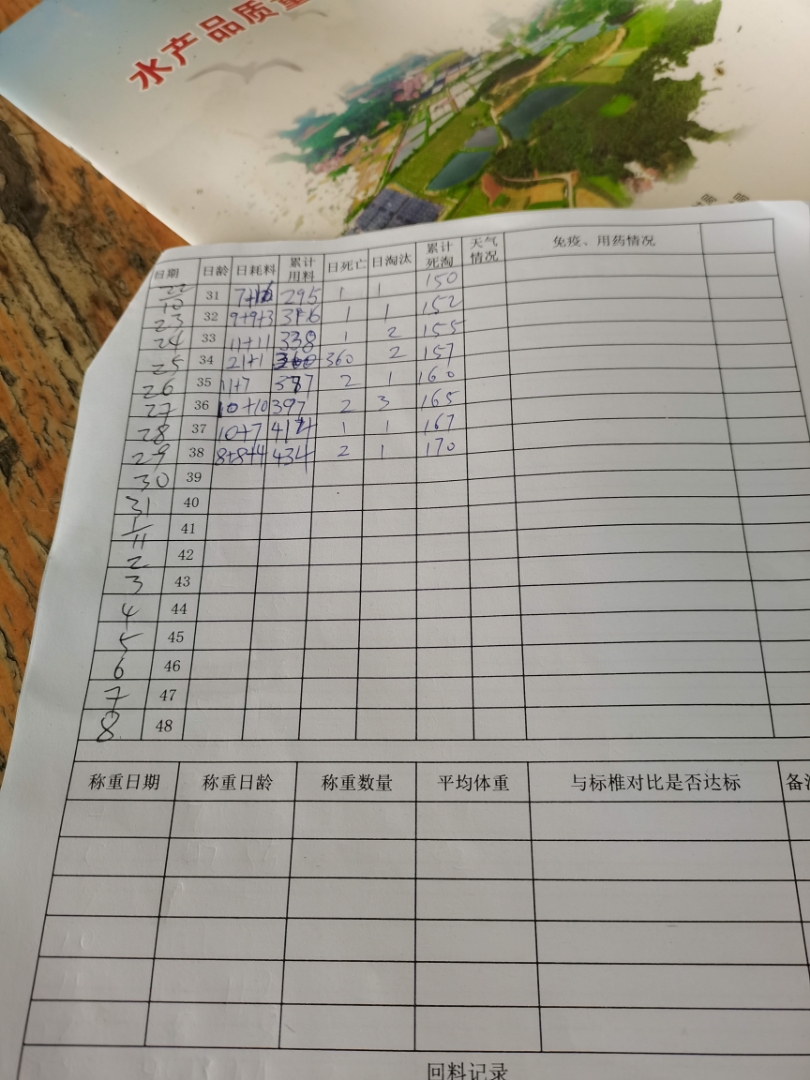 水产品质量
日期 日龄 日耗料 累计用料 日死亡 日淘汰 累计死淘 天气情况 免疫、用药情况
22/10 31 295 1 1 150
23 32 9+9+3 316 1 1 152
24 33 11+11 338 1 2 155
25 34 21+1 360 360 2 157
26 35 11+7 2 1 160
27 36 10+10 397 2 3 165
28 37 10+7 414 1 1 167
29 38 8+8+4 434 2 1 170
30 39
31 40
1/11 41
2 42
3 43
4 44
5 45
6 46
7 47
8 48
称重日期 称重日龄 称重数量 平均体重 与标椎对比是否达标 备
回料记录